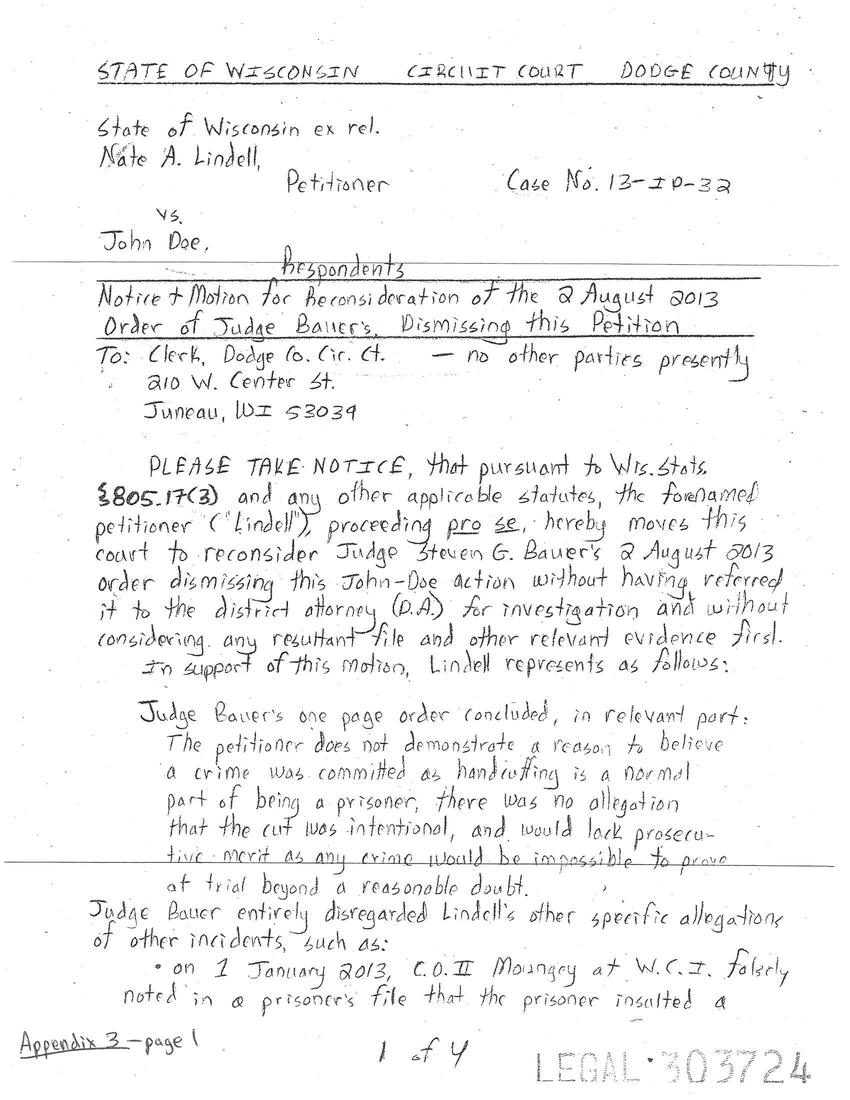 STATE OF WISCONSIN CIRCUIT COURT DODGE COUNTY
State of Wisconsin ex rel.
Nate A. Lindell,
Petitioner Case No. 13-IP-32
vs.
John Doe,
Respondents
Notice + Motion for Reconsideration of the 2 August 2013
Order of Judge Bauer's, Dismissing this Petition
To: Clerk, Dodge Co. Cir. Ct. — no other parties presently
210 W. Center St.
Juneau, WI 53039
PLEASE TAKE NOTICE, that pursuant to Wis. Stats.
§805.17(3) and any other applicable statutes, the forenamed
petitioner ("Lindell"), proceeding pro se, hereby moves this
court to reconsider Judge Steven G. Bauer's 2 August 2013
order dismissing this John-Doe action without having referred
it to the district attorney (D.A.) for investigation and without
considering any resultant file and other relevant evidence first.
In support of this motion, Lindell represents as follows:
Judge Bauer's one page order concluded, in relevant part:
The petitioner does not demonstrate a reason to believe
a crime was committed as handcuffing is a normal
part of being a prisoner, there was no allegation
that the cut was intentional, and would lack prosecu-
tive merit as any crime would be impossible to prove
at trial beyond a reasonable doubt.
Judge Bauer entirely disregarded Lindell's other specific allegations
of other incidents, such as:
• on 1 January 2013, C.O.II Moungey at W.C.I. falsely
noted in a prisoner's file that the prisoner insulted a
Appendix 3 - page 1
1 of 4
LEGAL 303724